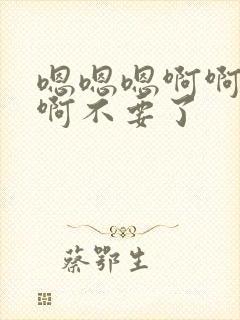 嗯嗯嗯啊啊
啊不要了
蔡鄂生